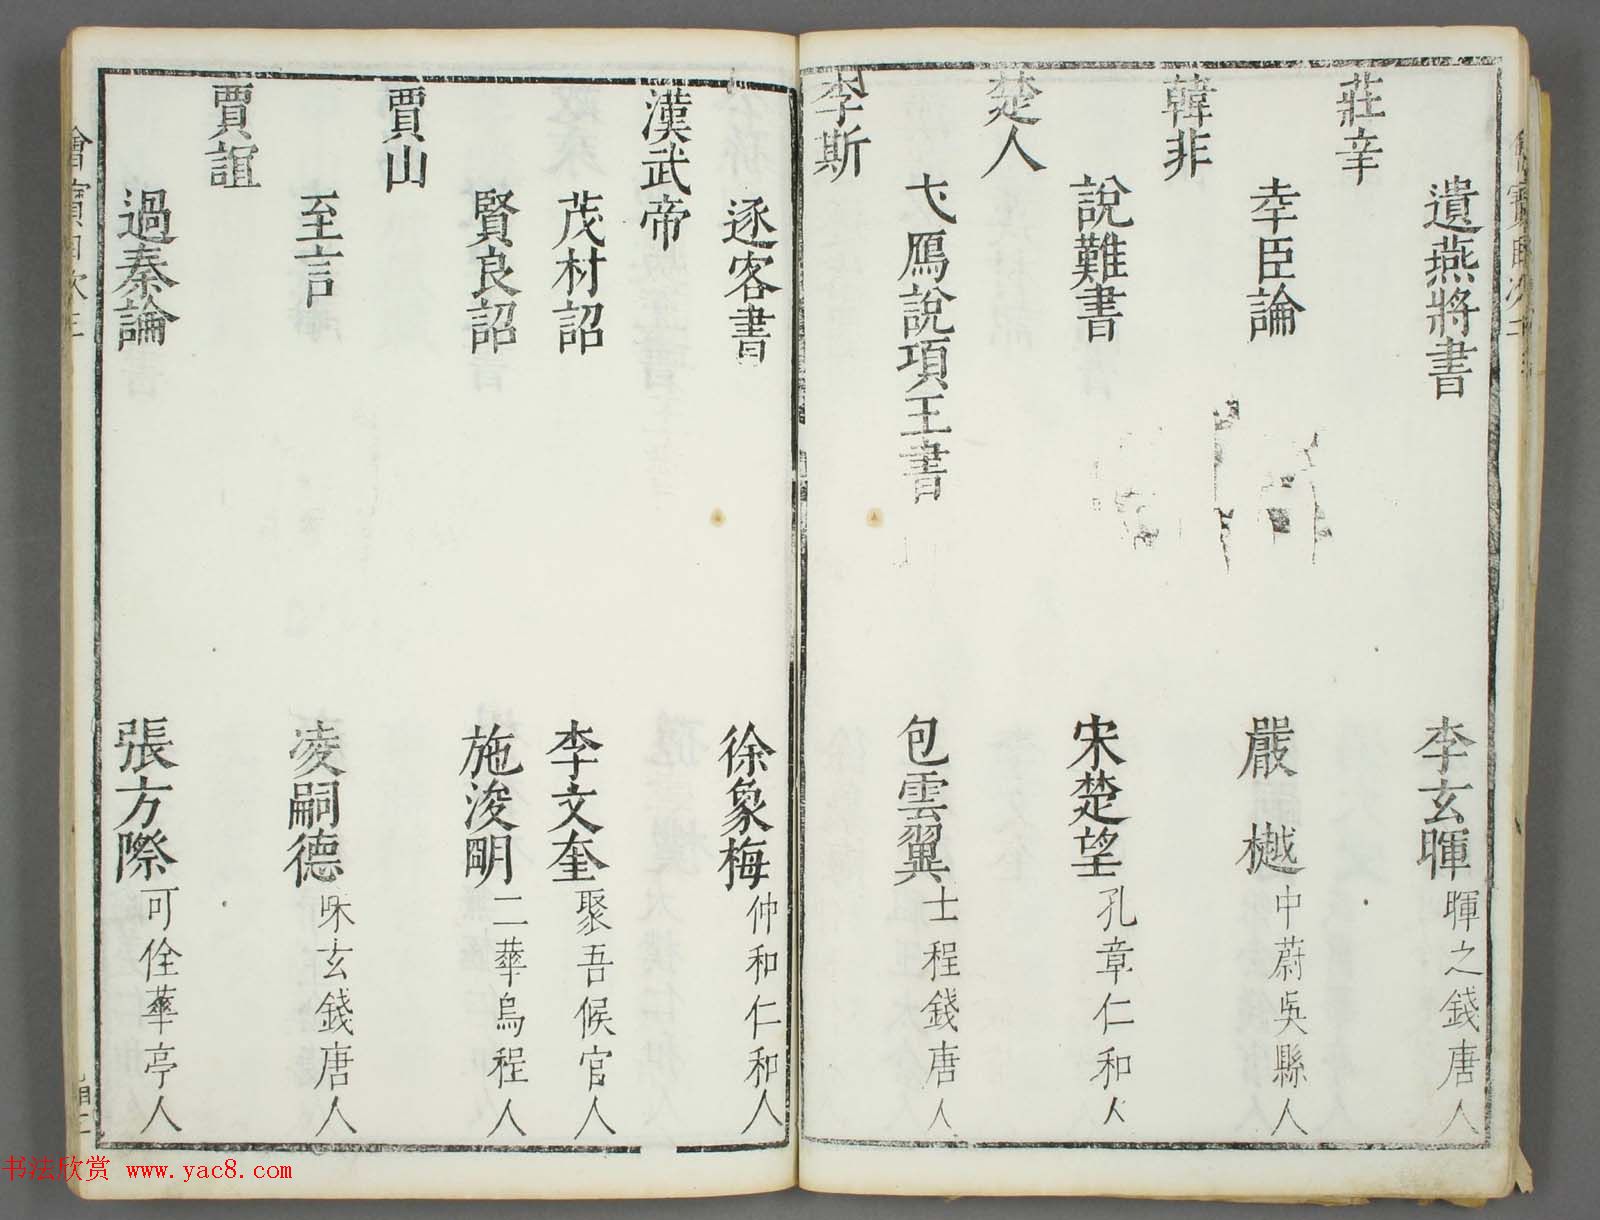 遺燕將書 李玄暉 暉之錢唐人
莊辛
幸臣論 嚴樾 中蔚吳縣人
韓非
說難書 宋楚望 孔章仁和人
楚人
弋鴈說項王書 包雲翼 士程錢唐人
李斯
逐客書 徐象梅 仲和仁和人
漢武帝
茂材詔 李文奎 聚吾候官人
賢良詔 施浚明 二華烏程人
賈山
至言 凌嗣德 玄錢唐人
賈誼
過秦論 張方際 可佺華亭人
书法欣赏 www.yac8.com